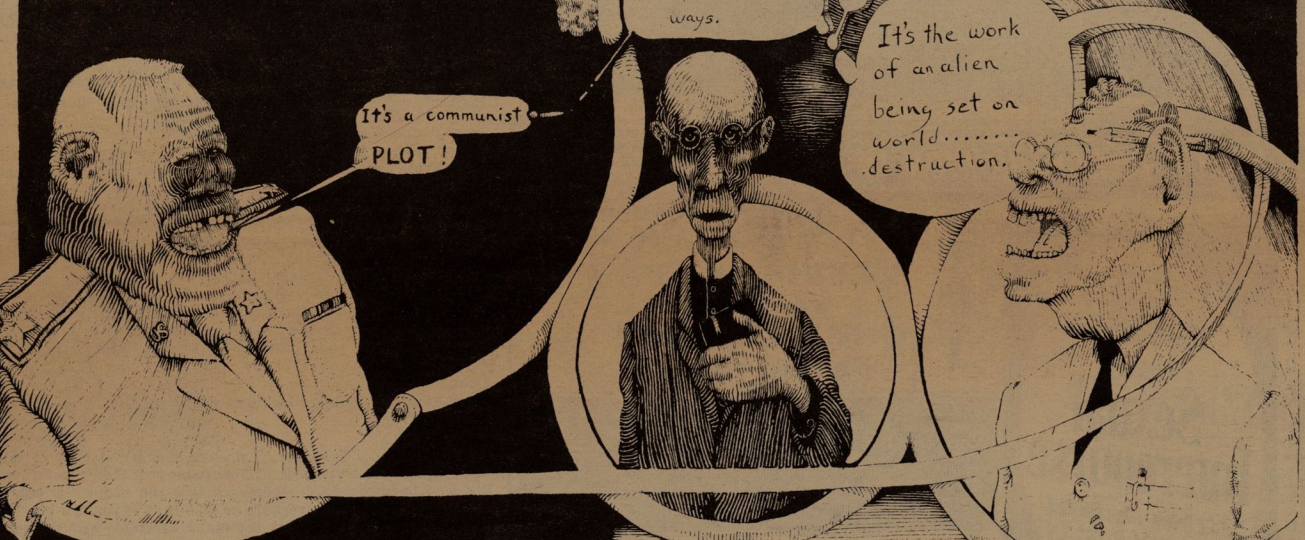 ways.
It's a communist
PLOT!
It's the work
of an alien
being set on
world........
.destruction.